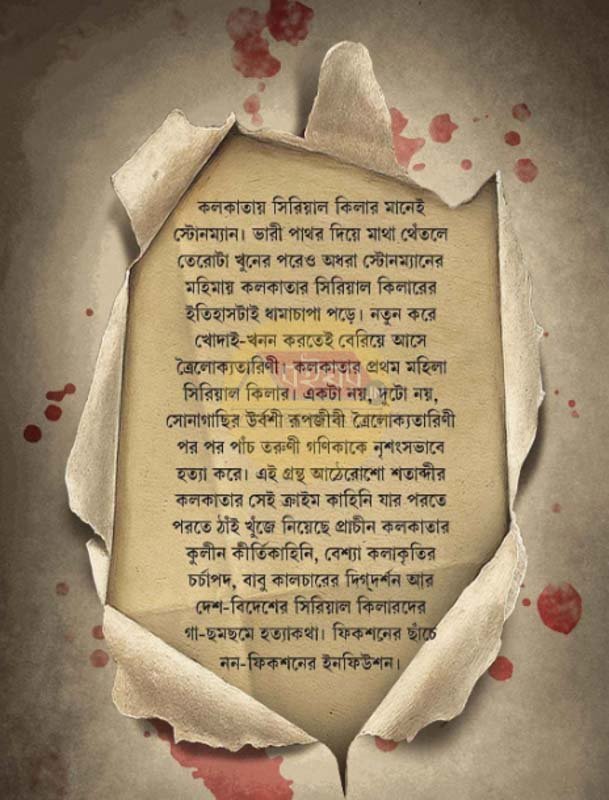 কলকাতায় সিরিয়াল কিলার মানেই
স্টোনম্যান। ভারী পাথর দিয়ে মাথা থেঁতলে
তেরোটা খুনের পরেও অধরা স্টোনম্যানের
মহিমায় কলকাতার সিরিয়াল কিলারের
ইতিহাসটাই ধামাচাপা পড়ে। নতুন করে
খোদাই-খনন করতেই বেরিয়ে আসে
ত্রৈলোক্যতারিণী। কলকাতার প্রথম মহিলা
সিরিয়াল কিলার। একটা নয়, দুটো নয়,
সোনাগাছির উর্বশী রূপজীবী ত্রৈলোক্যতারিণী
পর পর পাঁচ তরুণী গণিকাকে নৃশংসভাবে
হত্যা করে। এই গ্রন্থ আঠেরোশো শতাব্দীর
কলকাতার সেই ক্রাইম কাহিনি যার পরতে
পরতে ঠাঁই খুঁজে নিয়েছে প্রাচীন কলকাতার
কুলীন কীর্তিকাহিনি, বেশ্যা কলাকৃতির
চর্চাপদ, বাবু কালচারের দিগ্‌দর্শন আর
দেশ-বিদেশের সিরিয়াল কিলারদের
গা-ছমছমে হত্যাকথা। ফিকশনের ছাঁচে
নন-ফিকশনের ইনফিউশন।